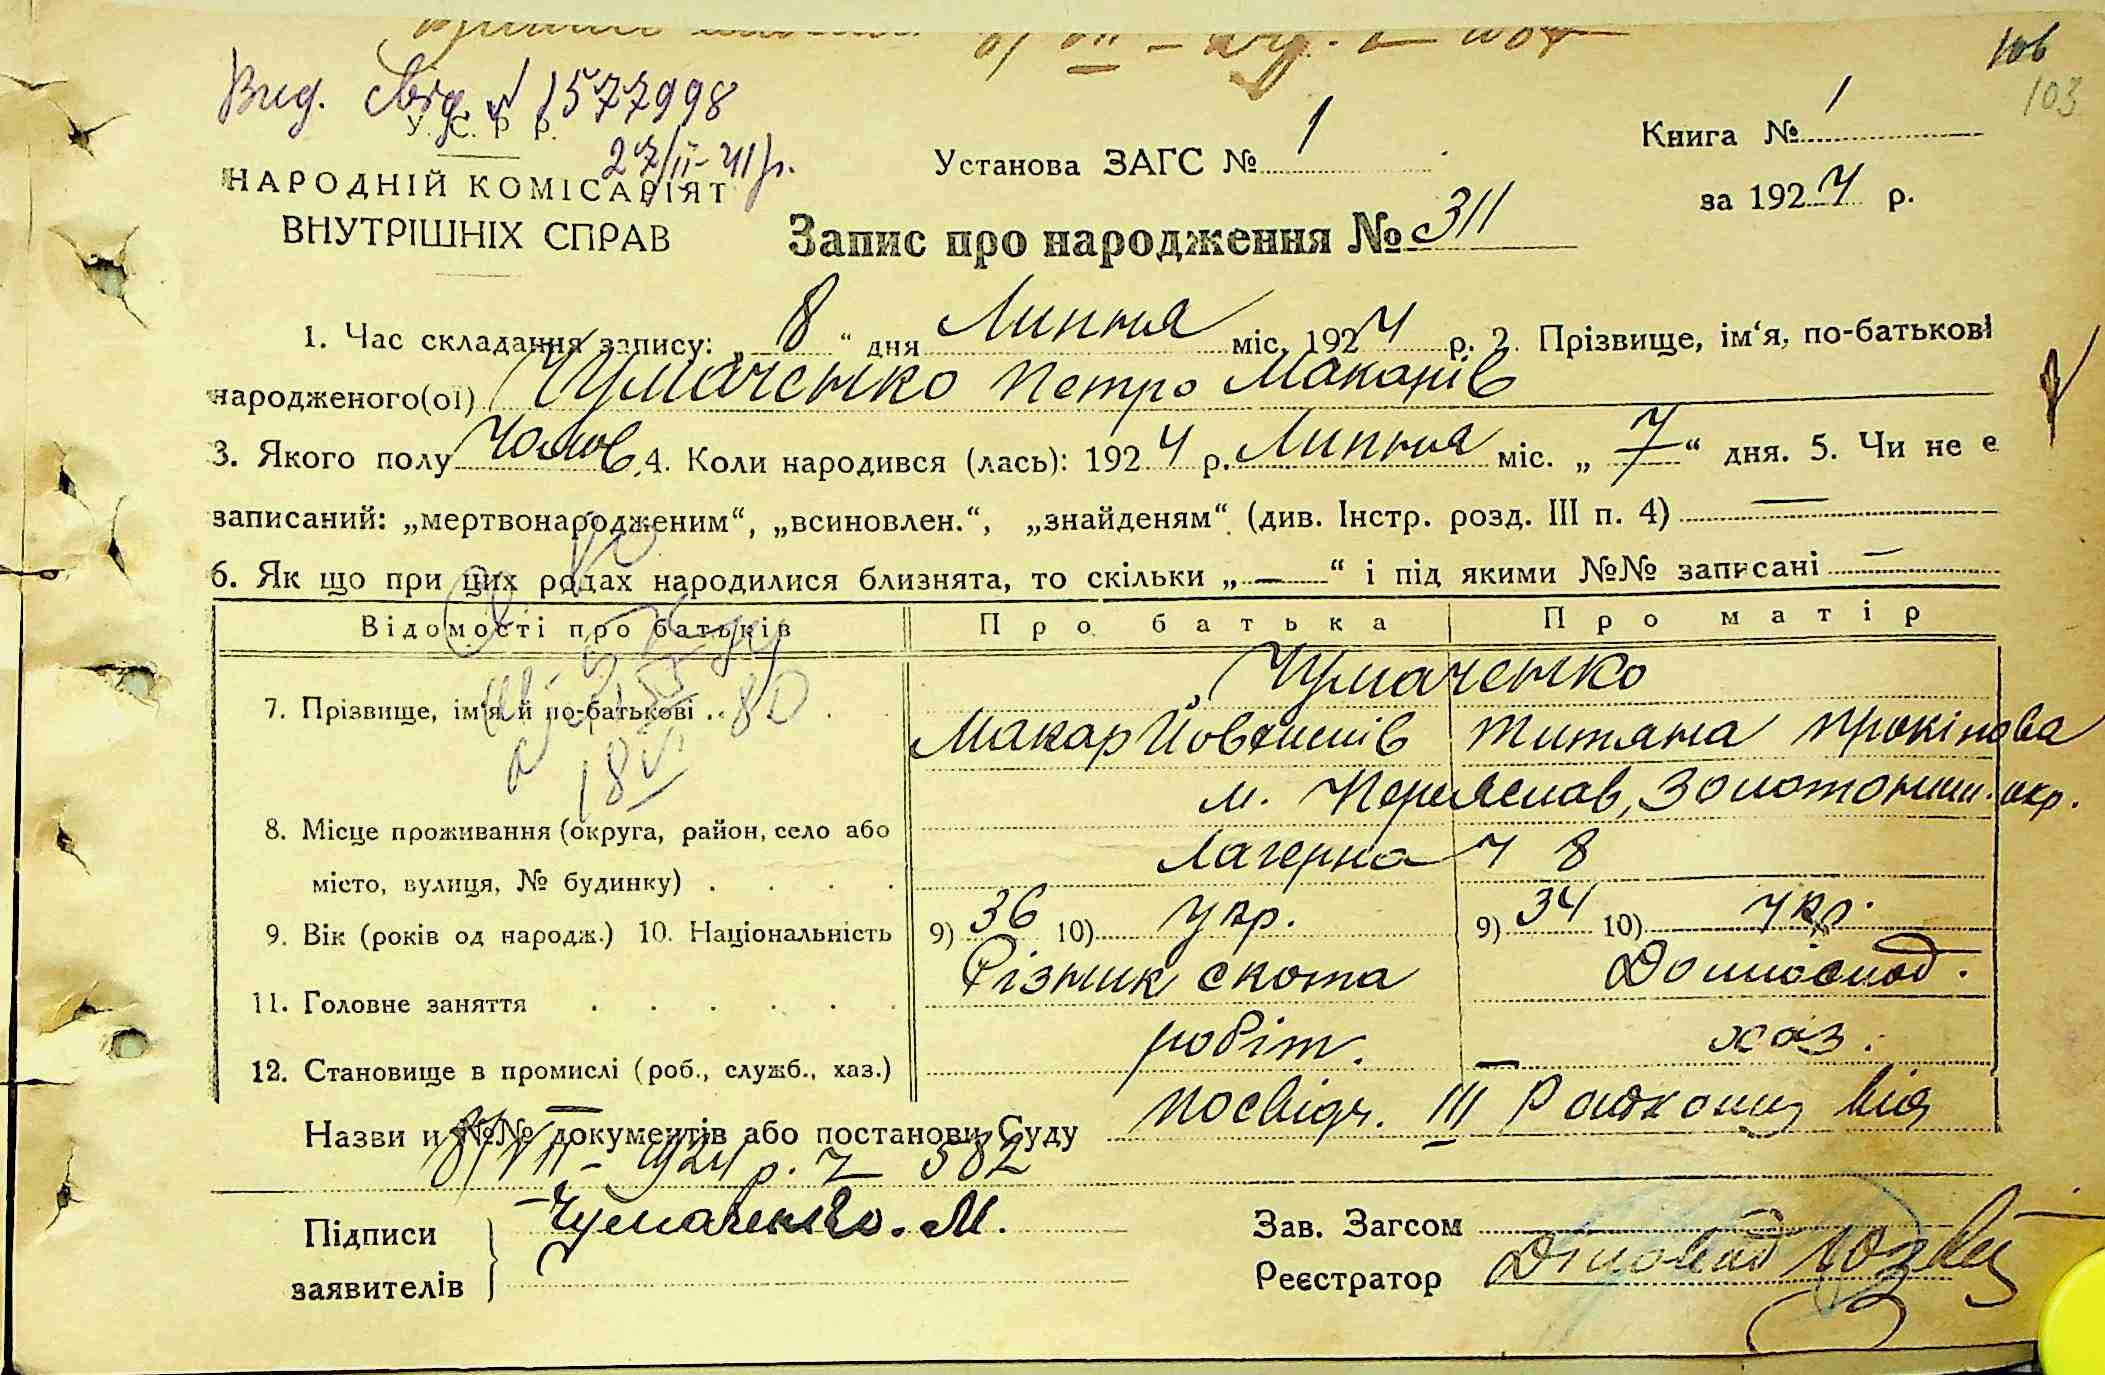 106
103
Вид. свід. № 1577998
27/II-41 р.
У. С. Р. Р.
НАРОДНІЙ КОМІСАРІЯТ
ВНУТРІШНІХ СПРАВ
Установа ЗАГС № 1
Книга № 1
за 1924 р.
Запис про народження № 311
1. Час складання запису: „ 8 “ дня Липня міс. 1924 р. 2. Прізвище, ім‘я, по-батькові
народженого(ої) Чумаченко Петро Макарів
3. Якого полу Чолов. 4. Коли народився (лась): 1924 р. Липня міс. „ 7 “ дня. 5. Чи не є
записаний: „мертвонародженим“, „всиновлен.“, „знайденям“ (див. Інстр. розд. III п. 4) —
6. Як що при цих родах народилися близнята, то скільки „ — “ і під якими №№ записані —
Відомості про батьків Про батька Про матір
7. Прізвище, ім‘я й по-батькові . . Чумаченко
Макар Йовтипів Титяна Прокіпова
8. Місце проживання (округа, район, село або м. Переяслав, Золотоніш. окр.
місто, вулиця, № будинку) . . . . Лагерна 8
9. Вік (років од народж.) 10. Національність 9) 36 10) Укр. 9) 34 10) Укр.
11. Головне заняття . . . . . Різник скота Домгоспод.
12. Становище в промислі (роб., служб., хаз.) робіт. — хаз.
Назви и №№ документів або постанови Суду посвідч. III Райкому від
8/VII-1924 р. № 582
Підписи
заявителів Чумаченко. М.
Зав. Загсом
Реєстратор